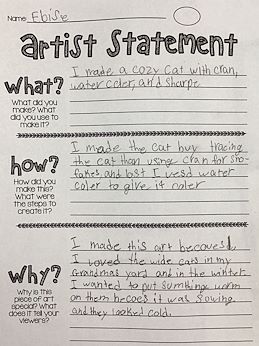 Name Eloise
artist Statement
What?
What did you
make? What
did you use to
make it?
I made a cozy cat with cran,
water coler, and sharpe
how?
How did you
make this?
What were
the steps to
create it?
I made the cat buy tracing
the cat than using cran for sho-
fakes, and last I uesd water
coler to give it coler
Why?
Why is this
piece of art
special? What
does it tell your
viewers?
I made this art becoues,
I loved the wide cats in my
Grandmas yard and in the winter
I wanted to put sumthing worm
on them becoes it was snowing
and they looked cold.